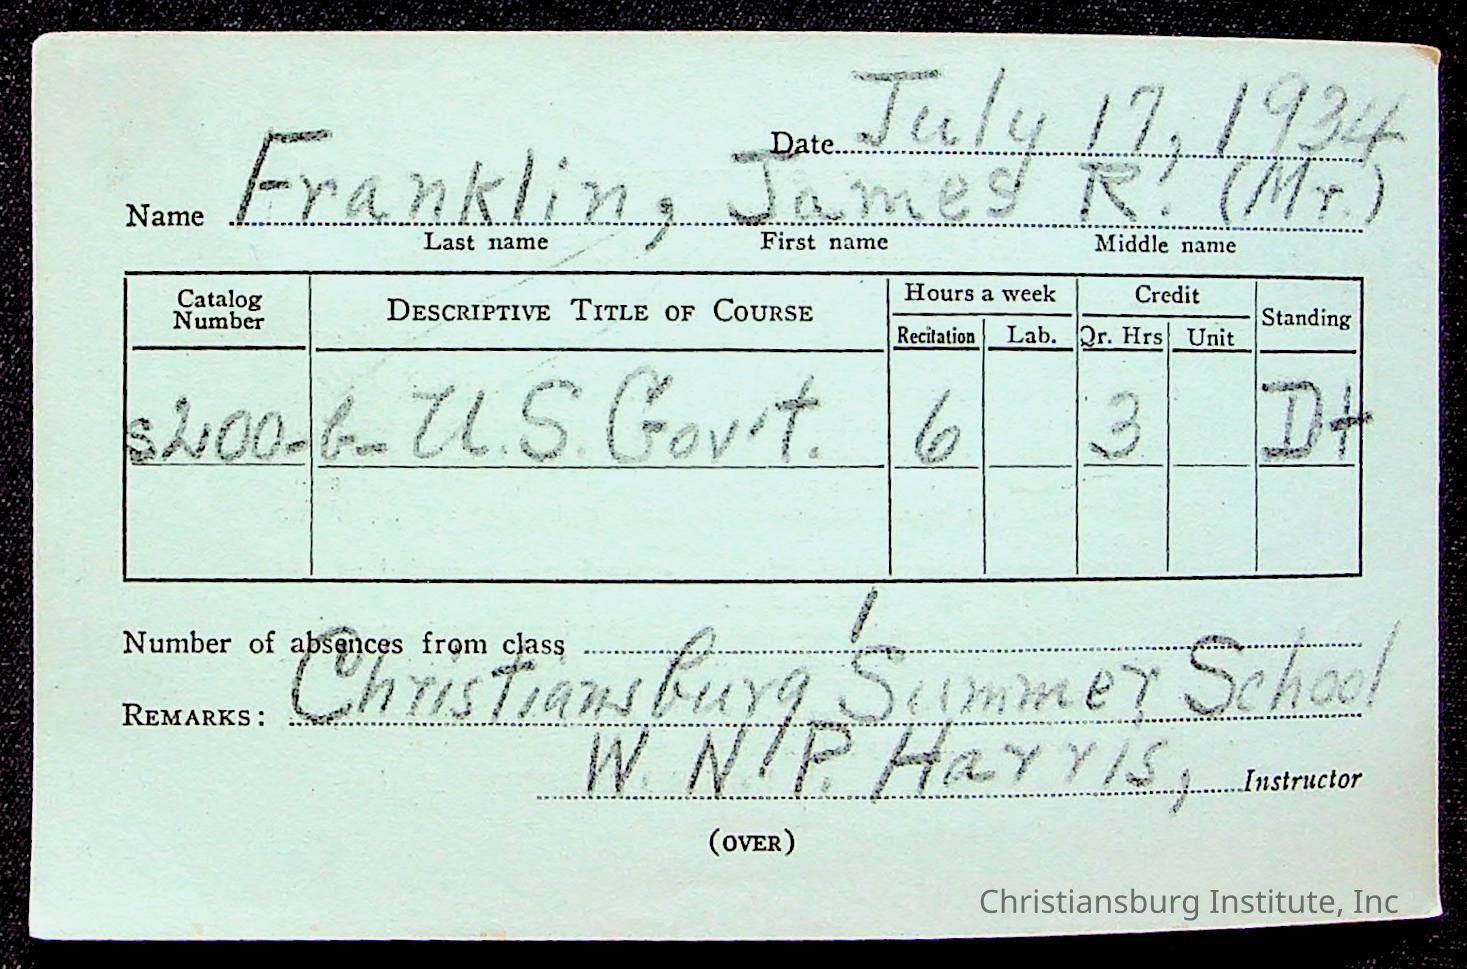 Date July 17, 1934
Name Franklin, James R. (Mr.)
Last name First name Middle name
Catalog Number DESCRIPTIVE TITLE OF COURSE Hours a week Credit Standing
Recitation Lab. Qr. Hrs Unit
s200-b- U.S. Gov't. 6 3 D+
Number of absences from class 1
REMARKS: Christiansburg Summer School
W. N. P. Harris, Instructor
(OVER)
Christiansburg Institute, Inc